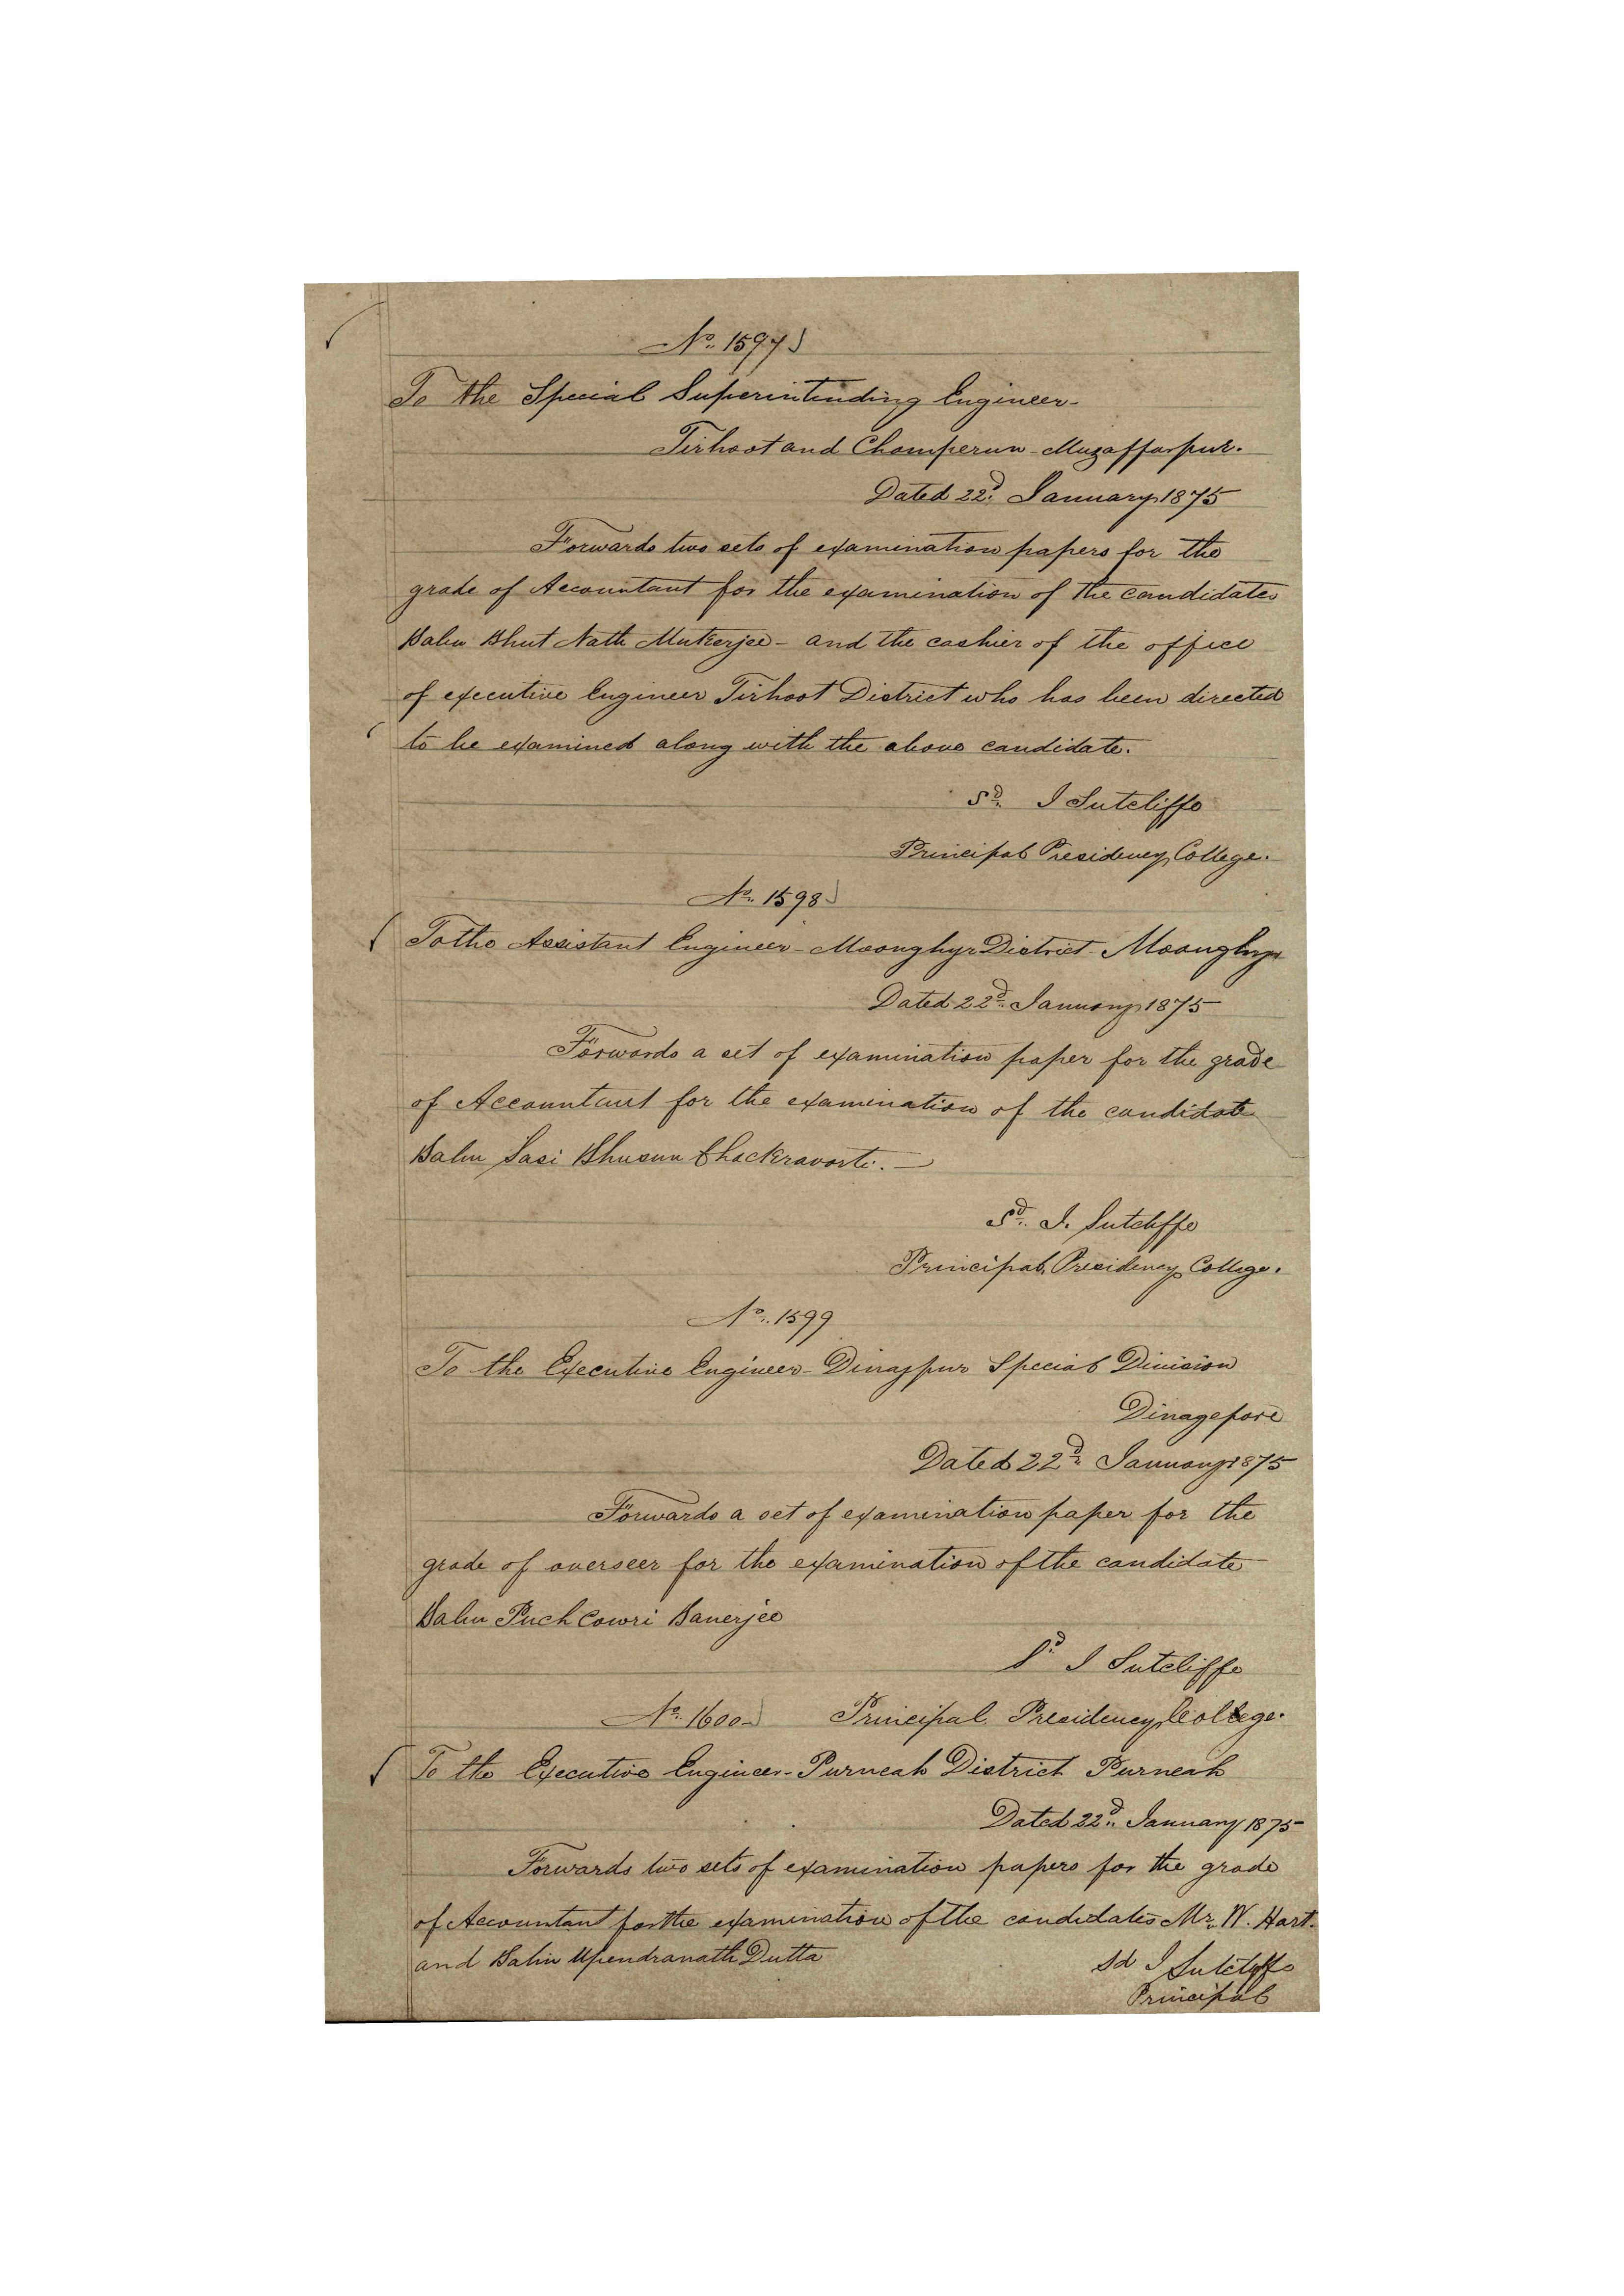 No. 1597
To the Special Superintending Engineer-
Tirhoot and Chomperun - Muzaffarpur.
Dated 22d. January 1875
Forwards two sets of examination papers for the
grade of Accountant for the examination of the candidates
Babu Bhut Nath Mukerjee - and the cashier of the office
of executive Engineer Tirhoot District who has been directed
to be examined along with the above candidate.
Sd. I Sutcliffe
Principal Presidency College.
No. 1598
To the Assistant Engineer - Moonghyr District - Moonghyr
Dated 22d. January 1875
Forwards a set of examination paper for the grade
of Accountant for the examination of the candidate
Babu Sasi Bhusun Chackravorti. —
Sd. I. Sutcliffe
Principal, Presidency College.
No. 1599
To the Executive Engineer - Dinajpur Special Division
Dinagepore
Dated 22d. January 1875
Forwards a set of examination paper for the
grade of overseer for the examination of the candidate
Babu Puch Cowri Banerjee
Sd. I Sutcliffe
No. 1600 Principal. Presidency College.
To the Executive Engineer - Purneah District Purneah
Dated 22d. January 1875
Forwards two sets of examination papers for the grade
of Accountant for the examination of the candidates Mr. W. Hart.
and Babu Upendranath Dutta
Sd I Sutcliffe
Principal